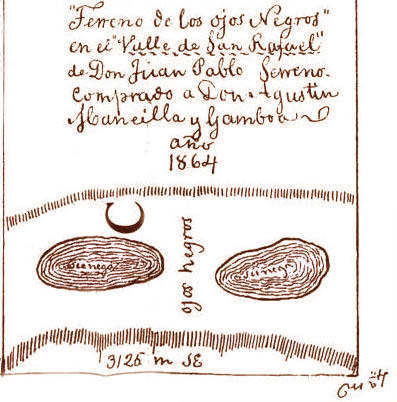 "Terreno de los ojos Negros"
en el "Valle de San Rafael"
de Don Juan Pablo Serreno.
Comprado a Don Agustin
Mancilla y Gamboa
año
1864
ojos negros
Cienega
Cienega
3125 m SE